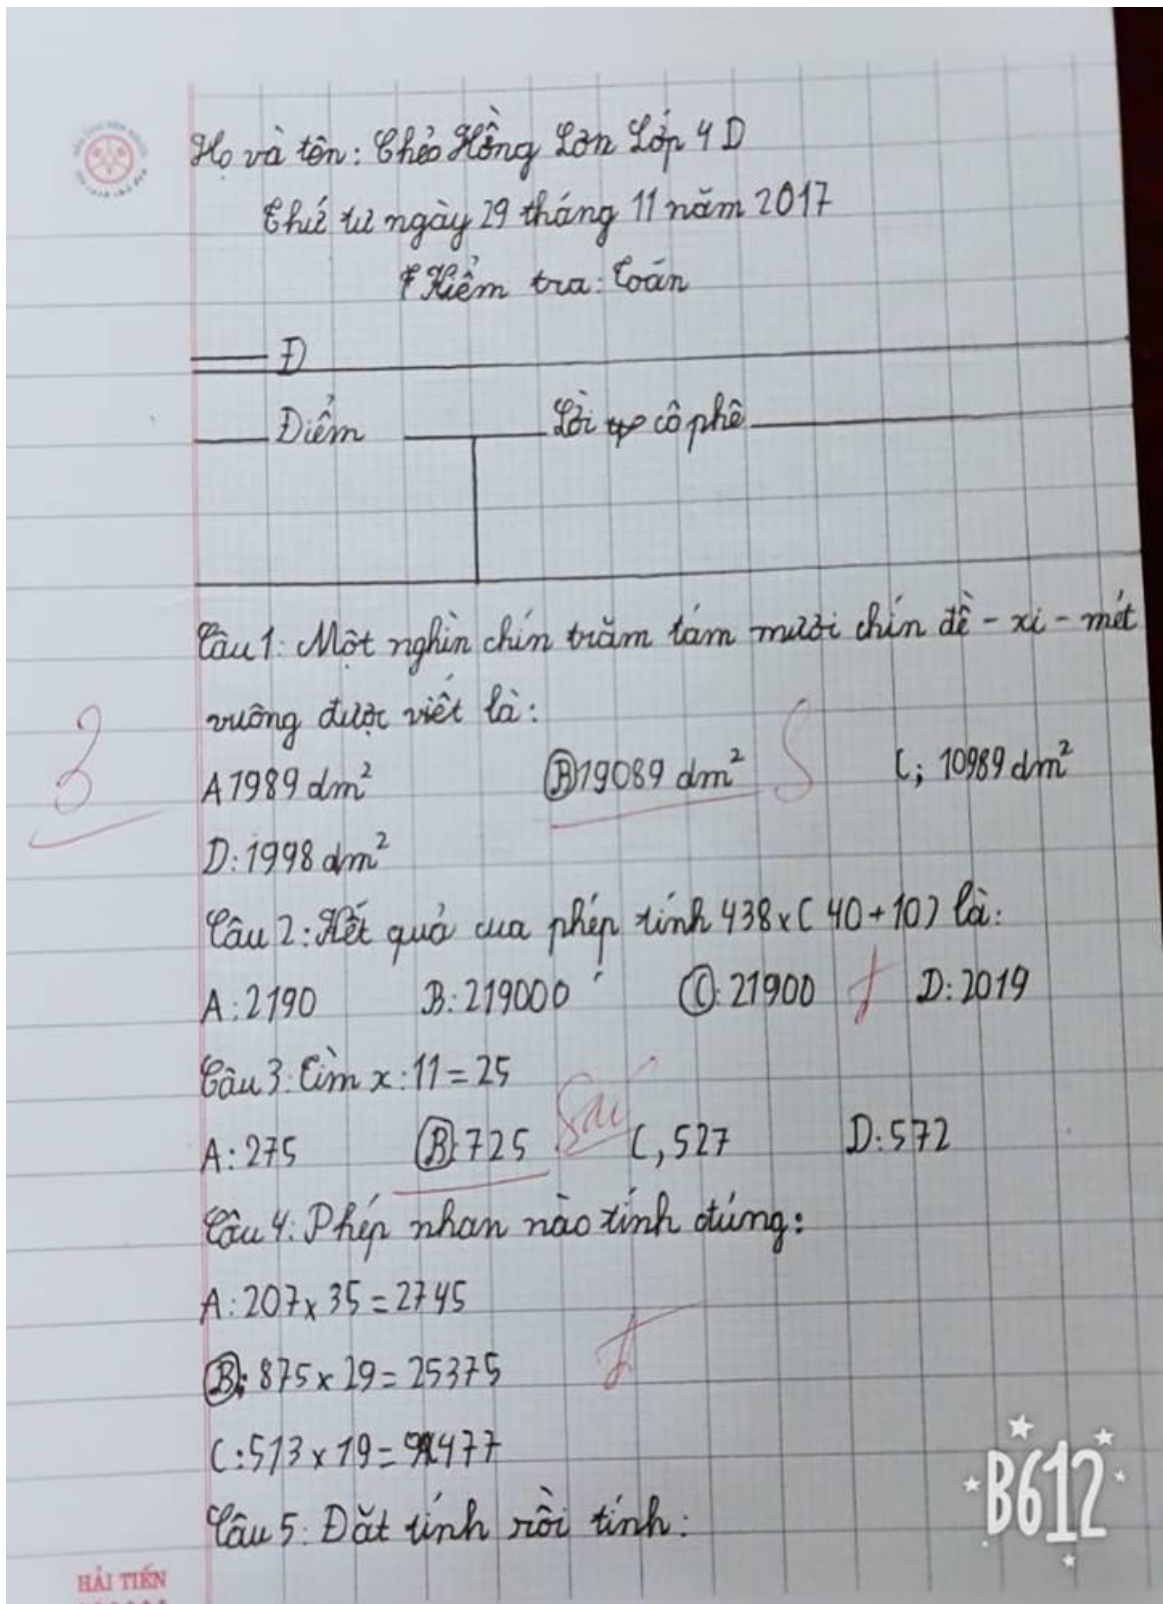 Họ và tên: Chẻo Hồng Lơn Lớp 4 D
Thứ tư ngày 29 tháng 11 năm 2017
Kiểm tra: Toán
Đ
Điểm Lời cô phê
Câu 1: Một nghìn chín trăm tám mươi chín đề - xi - mét
vuông được viết là:
3
A 1989 dm² B 19089 dm² S C; 10989 dm²
D: 1998 dm²
Câu 2: Kết quả cua phép tính 438 x ( 40 + 10 ) là:
A: 2190 B: 219000 C: 21900 D: 2019
Câu 3: Tìm x : 11 = 25
A: 275 B: 725 Sai C, 527 D: 572
Câu 4: Phép nhan nào tính đúng:
A: 207 x 35 = 2745
B: 875 x 29 = 25375
C: 513 x 19 = 477
Câu 5: Đặt tính rồi tính:
HẢI TIẾN
B612